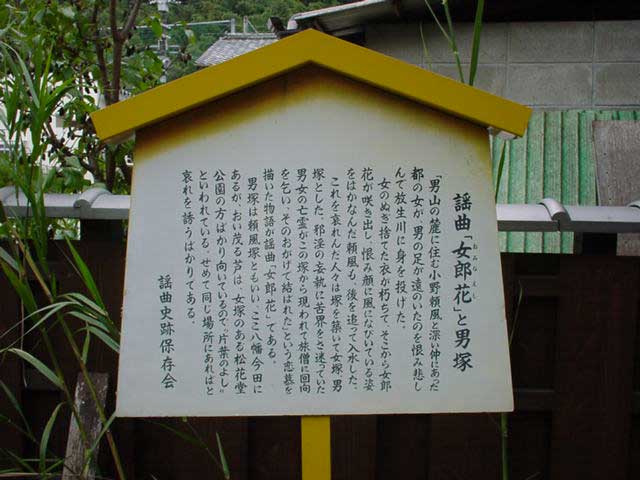 謡曲「女郎花」と男塚
おみなえし
「男山の麓に住む小野頼風と深い仲にあった
都の女が、男の足が遠のいたのを恨み悲し
んで放生川に身を投げた。
女のぬぎ捨てた衣が朽ちて、そこから女郎
花が咲き出し、恨み顔に風になびいている姿
をはかなんだ頼風も、後を追って入水した。
これを哀れんだ人々は塚を築いて女塚、男
塚とした。邪淫の妄執に苦界をさ迷っていた
男女の亡霊がこの塚から現われて旅僧に回向
を乞い、そのおかげで結ばれた」という恋慕を
描いた物語が謡曲「女郎花」である。
男塚は頼風塚ともいい、ここ八幡今田に
あるが、おい茂る芦は、女塚のある松花堂
公園の方ばかり向いているので、"片葉のよし"
といわれている。せめて同じ場所にあればと
哀れを誘うばかりである。
謡曲史跡保存会